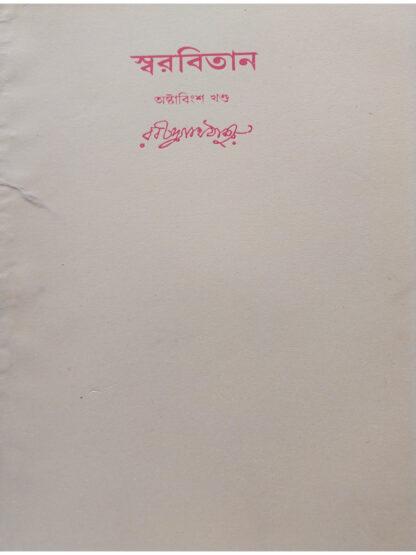 স্বরবিতান
অষ্টাবিংশ খণ্ড
রবীন্দ্রনাথ ঠাকুর